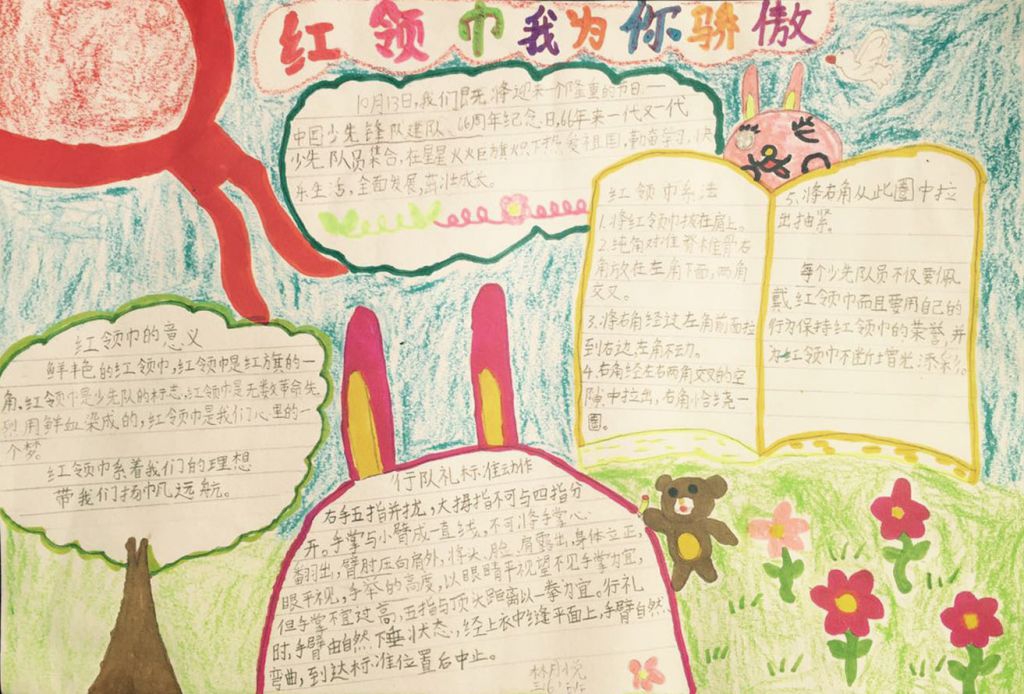 红领巾我为你骄傲
10月13日,我们既将迎来一个隆重的节日——
中国少先锋队建队、66周年纪念日,66年来一代又一代
少先队员集合,在星星火炬旗帜下热爱祖国,勤奋学习,快
乐生活,全面发展,茁壮成长。
红领巾系法
1.将红领巾披在肩上。
2.纯角对准脊椎骨右
角放在左角下面,两角
交叉。
3.将右角经过左角前面拉
到右边,左角不动。
4.右角经左右两角交叉的空
隙中拉出,右角恰绕一
圈。
5.将右角从此圈中拉
出抽紧。
每个少先队员不仅要佩
戴红领巾而且要用自己的
行为保持红领巾的荣誉,并
为红领巾不断增光添彩。
红领巾的意义
鲜丰色的红领巾,红领巾是红旗的一
角,红领巾是少先队的标志,红领巾是无数革命先
列用鲜血染成的,红领巾是我们心里的一
个梦。
红领巾系着我们的理想
带我们扬帆远航。
行队礼标准动作
右手五指并拢,大拇指不可与四指分
开。手掌与小臂成一直线,不可将手掌心
翻出,臂肘压向肩外,将头、脸、肩露出,身体立正,
眼平视,手举的高度,以眼睛平视望不见手掌为宜,
但手掌不宜过高,五指与顶头距离以一拳为宜。行礼
时,手臂由自然下垂状态,经上衣中缝平面上,手臂自然
弯曲,到达标准位置后中止。
林月悦
三(6)班